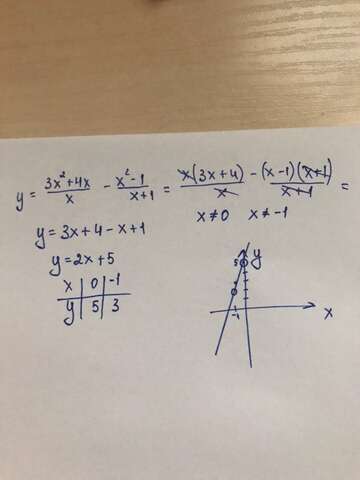 y = (3x²+4x)/x - (x²-1)/(x+1) = x(3x+4)/x - (x-1)(x+1)/(x+1) =
x≠0 x≠-1
y = 3x+4-x+1
y = 2x+5
x | 0 | -1
y | 5 | 3
y
5
-1
x